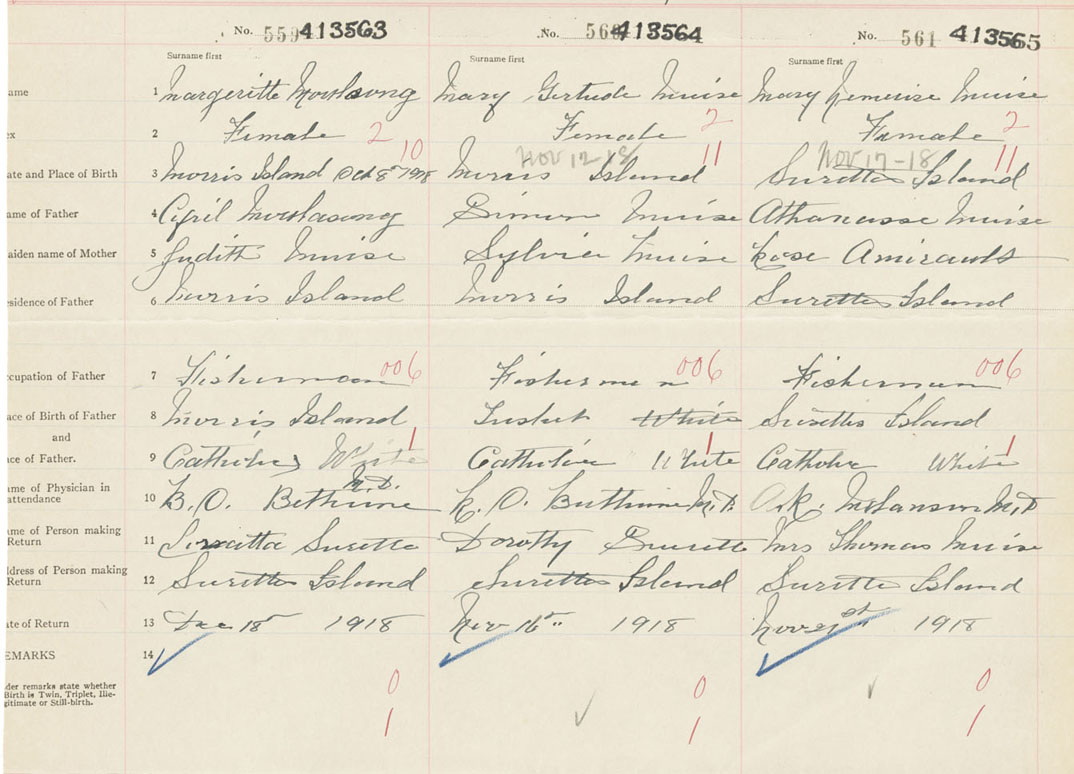 No. 559 413563 No. 560 413564 No. 561 413565
Surname first Surname first Surname first
ame 1 Margeritte Moulasong Mary Gertrude Muise Mary Nemerise Muise
ex 2 Female 2 Female 2 Female 2
10 Nov 12-18 11 Nov 17-18 11
ate and Place of Birth 3 Morris Island Oct 8" 1918 Morris Island Surettes Island
ame of Father 4 Cyril Moulasong Simon Muise Athanasse Muise
aiden name of Mother 5 Judith Muise Sylvia Muise Rose Amirault
esidence of Father 6 Morris Island Morris Island Surettes Island
006 006 006
ccupation of Father 7 Fisherman Fisherman Fisherman
ace of Birth of Father 8 Morris Island Tusket White Surettes Island
and 1 1 1
ce of Father. 9 Catholic White Catholic White Catholic White
ame of Physician in attendance 10 B. O. Bethune M.D. B. O. Bethune M.D. A.R. Melanson M.D
ame of Person making Return 11 Surette Dorothy Surette Mrs Thomas Muise
ddress of Person making Return 12 Surettes Island Surettes Island Surettes Island
ate of Return 13 Dec 18" 1918 Nov 16" 1918 Nov 21st 1918
EMARKS 14
der remarks state whether
Birth is Twin, Triplet, Ille-
gitimate or Still-birth.
0 0 0
1 1 1